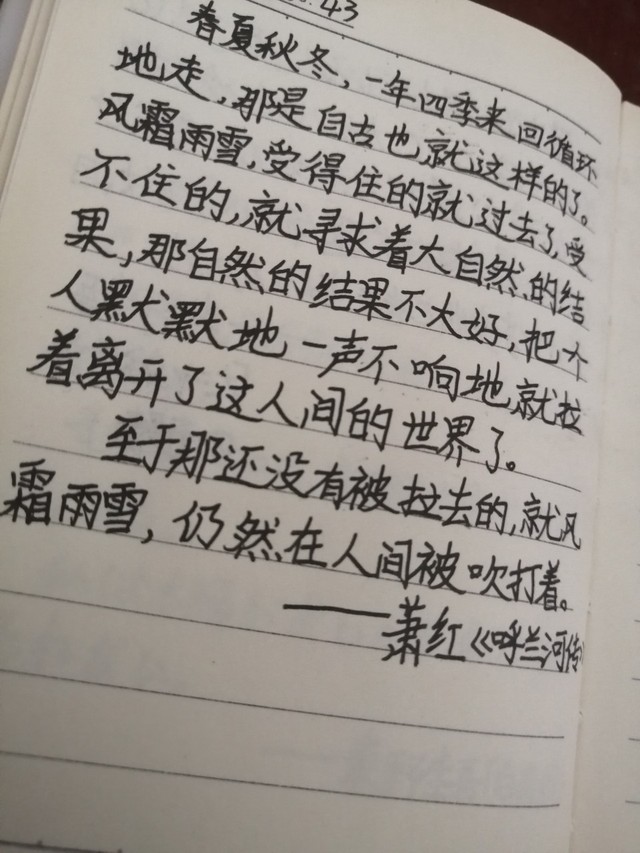 43
春夏秋冬，一年四季来回循环
地走，那是自古也就这样的了。
风霜雨雪，受得住的就过去了，受
不住的，就寻求着大自然的结
果，那自然的结果不大好，把个
人默默地一声不响地就拉
着离开了这人间的世界了。
至于那还没有被拉去的，就风
霜雨雪，仍然在人间被吹打着。
——萧红《呼兰河传